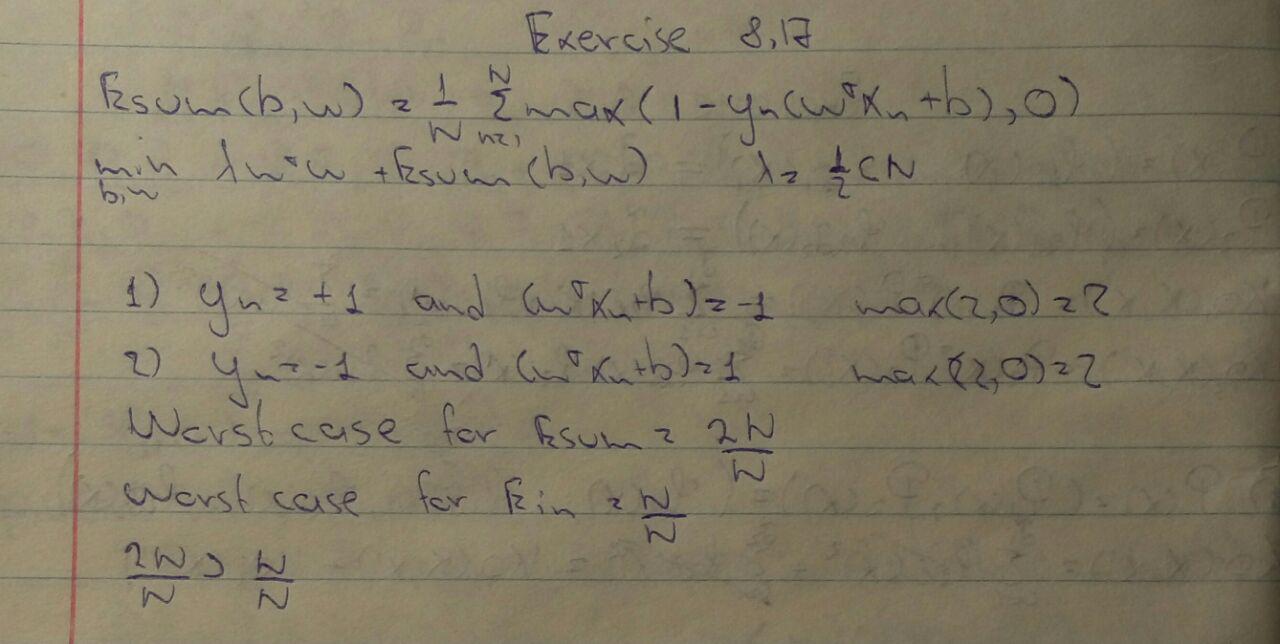 Exercise 8,17
Esum(b,w) = 1/N Σ_{n=1}^{N} max(1-yₙ(wᵀxₙ+b),0)
min_{b,w} λwᵀw + Esum(b,w) λ= ½CN
1) yₙ = +1 and (wᵀxₙ+b)=-1 max(2,0)=2
2) yₙ=-1 and (wᵀxₙ+b)=1 max(2,0)=2
Worst case for Esum = 2N/N
Worst case for Ein = N/N
2N/N > N/N